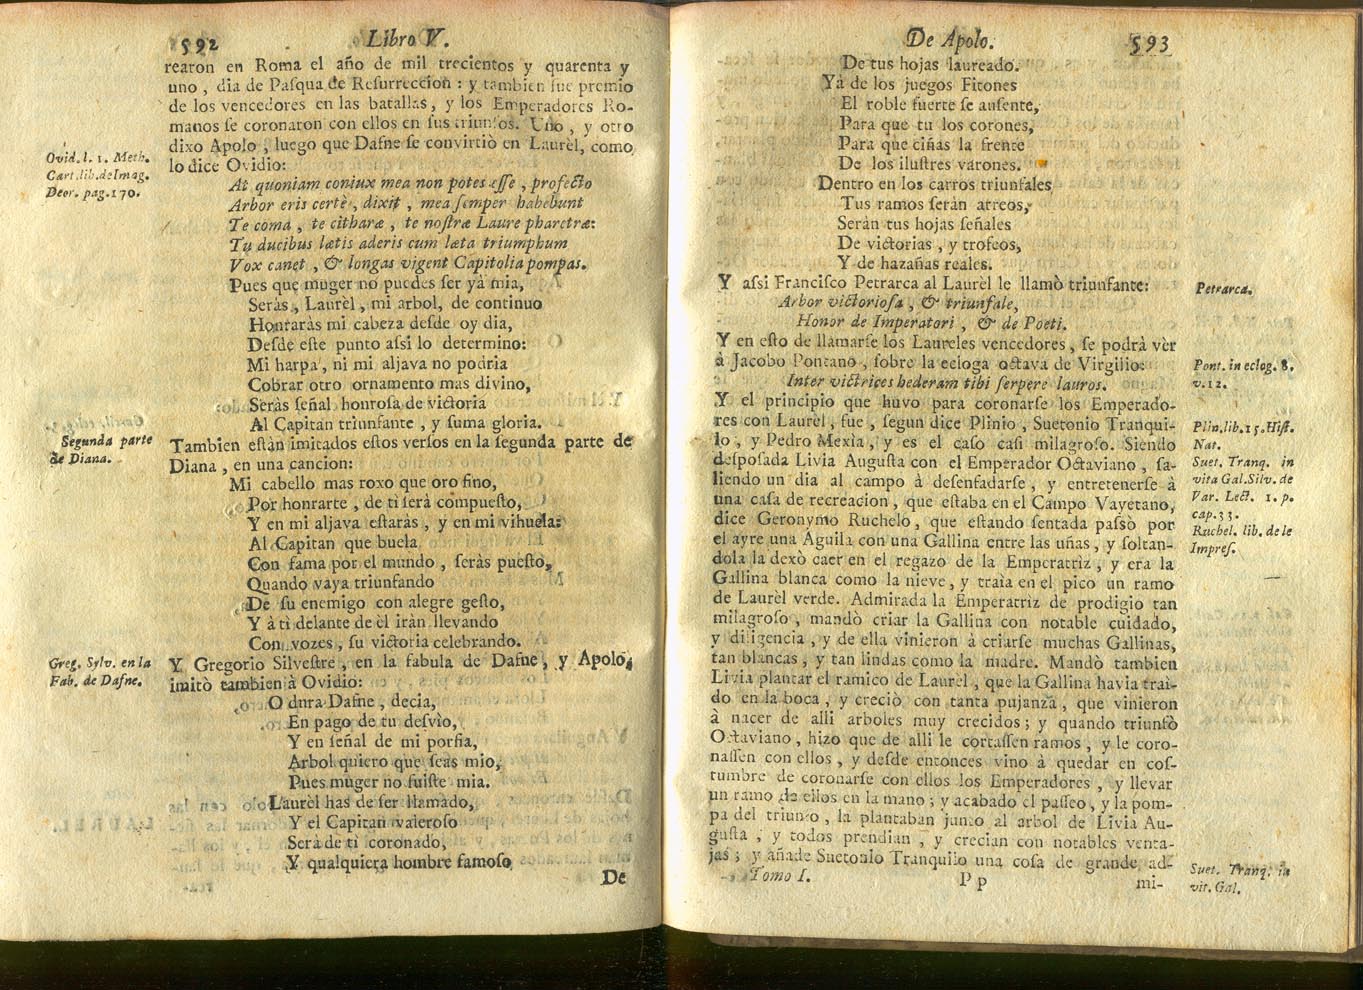 592 Libro V.
rearon en Roma el año de mil trecientos y quarenta y
uno, dia de Pasqua de Resurreccion: y tambien fue premio
de los vencedores en las batallas, y los Emperadores Ro-
manos se coronaron con ellos en sus triunfos. Uno, y otro
dixo Apolo, luego que Dafne se convirtiò en Laurèl, como
lo dice Ovidio:
Ovid. l. 1. Meth.
Cart. lib. de Imag.
Deor. pag. 170.
At quoniam coniux mea non potes esse, profecto
Arbor eris certè, dixit, mea semper habebunt
Te coma, te citharæ, te nostræ Laure pharetræ:
Tu ducibus lætis aderis cum læta triumphum
Vox canet, & longas vigent Capitolia pompas.
Pues que muger no puedes ser yà mia,
Seràs, Laurèl, mi arbol, de continuo
Honraràs mi cabeza desde oy dia,
Desde este punto assi lo determino:
Mi harpa, ni mi aljava no podria
Cobrar otro ornamento mas divino,
Seràs señal honrosa de victoria
Al Capitan triunfante, y suma gloria.
Tambien estàn imitados estos versos en la segunda parte de
Diana, en una cancion:
Segunda parte
de Diana.
Mi cabello mas roxo que oro fino,
Por honrarte, de ti serà compuesto,
Y en mi aljava estaràs, y en mi vihuela:
Al Capitan que buela
Con fama por el mundo, seràs puesto,
Quando vaya triunfando
De su enemigo con alegre gesto,
Y à tì delante de èl iràn llevando
Con vozes, su victoria celebrando.
Y Gregorio Silvestre, en la fabula de Dafne, y Apolo,
imitò tambien à Ovidio:
Greg. Sylv. en la
Fab. de Dafne.
O dura Dafne, decia,
En pago de tu desvio,
Y en señal de mi porfia,
Arbol quiero que seas mio,
Pues muger no fuiste mia.
Laurèl has de ser llamado,
Y el Capitan valeroso
Serà de tì coronado,
Y qualquiera hombre famoso
De
De Apolo. 593
De tus hojas laureado.
Yà de los juegos Fitones
El roble fuerte se ausente,
Para que tu los corones,
Para que ciñas la frente
De los ilustres varones.
Dentro en los carros triunfales
Tus ramos seràn atreos,
Seràn tus hojas señales
De victorias, y trofeos,
Y de hazañas reales.
Y assi Francisco Petrarca al Laurèl le llamò triunfante:
Petrarca.
Arbor victoriosa, & triunfale,
Honor de Imperatori, & de Poeti.
Y en esto de llamarse los Laureles vencedores, se podrà vèr
à Jacobo Pontano, sobre la ecloga octava de Virgilio:
Pont. in eclog. 8.
v. 12.
Inter victrices hederam tibi serpere lauros.
Y el principio que huvo para coronarse los Emperado-
res con Laurèl, fue, segun dice Plinio, Suetonio Tranqui-
lo, y Pedro Mexia, y es el caso casi milagroso. Siendo
desposada Livia Augusta con el Emperador Octaviano, sa-
liendo un dia al campo à desenfadarse, y entretenerse à
una casa de recreacion, que estaba en el Campo Vayetano,
dice Geronymo Ruchelo, que estando sentada passò por
el ayre una Aguila con una Gallina entre las uñas, y soltan-
dola la dexò caer en el regazo de la Emperatriz, y era la
Gallina blanca como la nieve, y traìa en el pico un ramo
de Laurèl verde. Admirada la Emperatriz de prodigio tan
milagroso, mandò criar la Gallina con notable cuidado,
y diligencia, y de ella vinieron à criarse muchas Gallinas,
tan blancas, y tan lindas como la madre. Mandò tambien
Livia plantar el ramico de Laurèl, que la Gallina havia trai-
do en la boca, y creciò con tanta pujanza, que vinieron
à nacer de alli arboles muy crecidos; y quando triunfò
Octaviano, hizo que de alli le cortassen ramos, y le coro-
nassen con ellos, y desde entonces vino à quedar en cos-
tumbre de coronarse con ellos los Emperadores, y llevar
un ramo de ellos en la mano; y acabado el passeo, y la pom-
pa del triunfo, la plantaban junto al arbol de Livia Au-
gusta, y todos prendian, y crecian con notables venta-
jas; y añade Suetonio Tranquilo una cosa de grande ad-
Plin. lib. 15. Hist.
Nat.
Suet. Tranq. in
vita Gal. Silv. de
Var. Lect. 1. p.
cap. 33.
Ruchel. lib. de le
Impres.
Suet. Tranq. in
vit. Gal.
Tomo I. Pp mi-